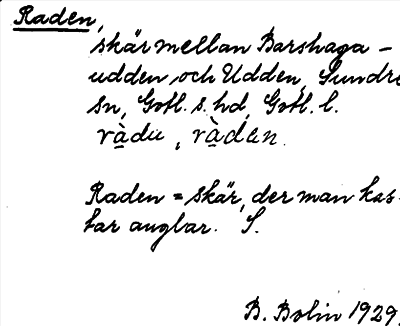 Raden,
skär mellan Barshaga-
udden och Udden, Sundre
sn, Gotl. s. hd, Gotl. l.
ràdu, ràdan.
Raden = skär, der man kas-
tar anglar. S.
B. Bolin 1929.